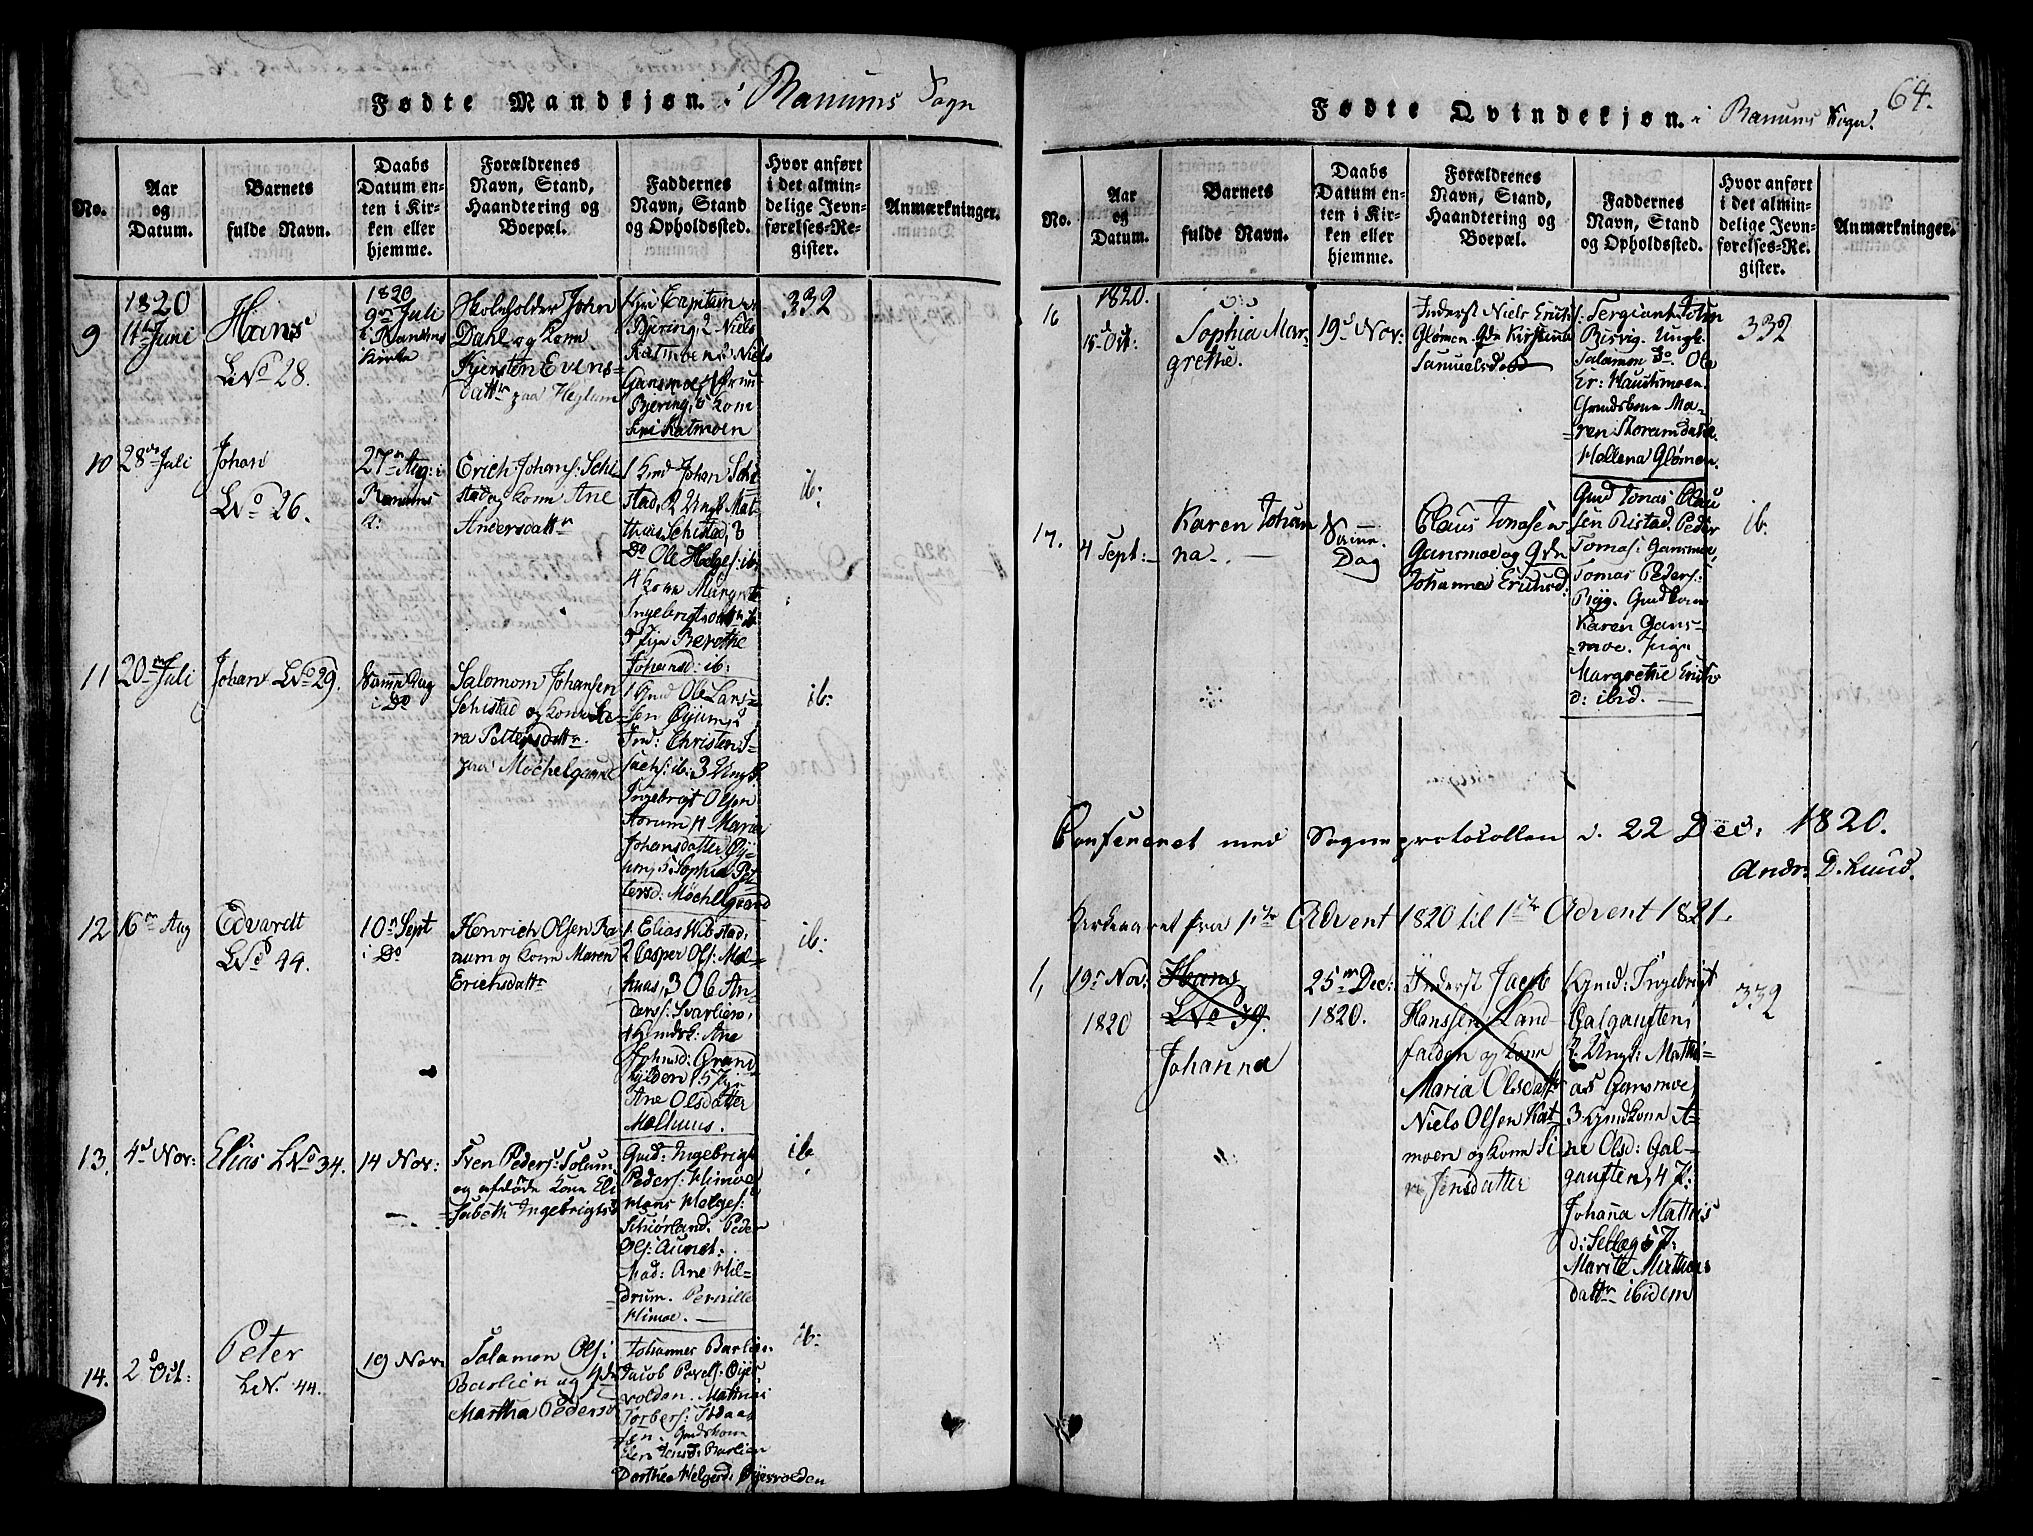 Fødte Mandkjøn. i Ranums Sogn
No.
Aar
og
Datum.
Barnets
fulde Navn.
Daabs
Datum en-
ten i Kir-
ken eller
hjemme.
Forældrenes
Navn, Stand,
Haandtering og
Boepæl.
Faddernes
Navn, Stand
og Opholdssted.
Hvor anført
i det almin-
delige Jevn-
førelses-Re-
gister.
Anmærkninger.
9
1820
11te Juni
Hans
LNo 28.
1820
9de Juli
i Ranums
Kirke
Skoleholder John
Dahl og Kone
Kjersten Evens-
dattr paa Heglum
Capitain
Bjering 2 Niels
Katmoen 3 Niels
Gansmoe
Bjering, 5 Kone
Siri Katmoen
332
10
28de Juli
Johan
LNo 26.
27n Aug: i
Ranums
K:
Erich Johans: Schi-
stad og Kone Ane
Andersdattr
1 Gmd Johan Schi-
stad, 2 Ungk Mat-
thias Schistad, 3
Do Ole Helges: ib:
4 Kone Margrete
Ingebrigtsdattr ib:
5 Pige Berethe
Johansd: ib:
ib:
11
20n Juli
Johan LNo 29.
Samme Dag
i Do
Salomom Johansen
Schistad og Kone Sa-
ra Pettersdattr
paa Mochelgaard
1 Gmd Ole Lars-
sen Øyum, 2
Ind: Christen I-
sachs: ib: 3 Ungk
Ingebrigt Olsen
Aorum 4 Maria
Johansdatter Øy-
um, 5 Sophia Pet-
tersd: Mochelgaard
ib:
12
16n Aug
Edvardt
LNo 44.
10n Sept
i Do
Henrich Olsen Ra-
num og Kone Maren
Erichsdattr
1. Elias Wibstad,
2 Casper Ols: Mel-
huus, 3 Ole An-
ders: Svarlien,
4 Gmdsk: Ane
Johnsd: Grand-
hylden 5 P:
Ane Olsdatter
Melhuus.
ib:
13.
4d Nov:
Elias LNo 34.
14 Nov:
Sven Peders: Solum
og afdøde Kone Eli-
sabeth Ingebrigtsd
Gmd: Ingebrigt
Peders: Himoe
Hans Helges:
Schiørland. Peder
Ols: Aunet:
Mad: Ane Hil-
drum. Pernille
Himoe.
ib
14.
2d Oct:
Peter
LN. 44.
19 Nov:
Salamon Ols:
Barlien og Gde
Martha Pedersd
Johannes Barlien
Jacob Povels: Øyes-
volden. Mathias
Torbers:
Gmdskone
Elen Jensd: Barlien
Dorthea Helgesd: Øyesvolden
ib:
64.
Fødte Qvindekjøn. i Ranums Sogn.
No.
Aar
og
Datum.
Barnets
fulde Navn.
Daabs
Datum en-
ten i Kir-
ken eller
hjemme.
Forældrenes
Navn, Stand,
Haandtering og
Boepæl.
Faddernes
Navn, Stand
og Opholdssted.
Hvor anført
i det almin-
delige Jevn-
førelses-Re-
gister.
Anmærkninger.
16
1820.
15d Oct:
Sophia Mar-
grethe.
19d Nov:
Inderst Niels Erich
Glømen. Gde Kirstina
Samuelsd
Sergiant John
Bisvig. Ungk.
Salamon Do Ole
Er: Hauchmoen.
Gmdskone Ma-
ren Storamdahl.
Hellena Glømen.
332
17.
4 Sept:
Karen Johan-
na.
Same
Dag
Claus Jonasen
Gansmoe og Gde
Johanna Erichsd:
Gmd Jonas Clau-
sen Ristad. Peder
Tomas: Gansmoe,
Tomas Peders:
Ryg. Gmdkone
Karen Gans-
moe. Pige
Margrethe Erichs
d: ibid.
ib.
Confereret med Sogneprotokollen d. 22 Dec: 1820.
Andr. D. Lund.
Kirkeaaret fra 1ste Advent 1820 til 1ste Advent 1821.
1,
19n Nov:
1820
Hans
LNo 39.
Johanna
25n Dec:
1820.
Inderst Jacob
Hanssen Land-
falden og Kone
Maria Olsdattr
Niels Olsen Kat-
moen og Kone Si-
ri Jensdatter
1 Gmd: Ingebrigt
Galgauften,
2. Ungk: Mathi-
as Gansmoe,
3 Gmdkone A-
ne Olsd: Gal-
gauften, 4 P:
Johanna Mathis
d: Sellæg 5 P:
Marite Mathias
dattr ibidem
332